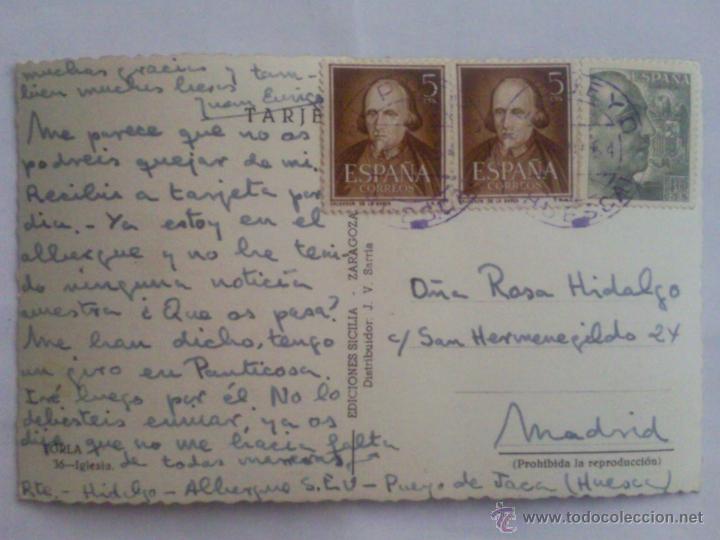 muchas gracias y tam-
bien muchos besos
Juan Enrique
TARJE
Me parece que no os
podreis quejar de mi.
Recibis a tarjeta por
dia.- Ya estoy en el
albergue y no he teni-
do ninguna noticia
vuestra ¿Que os pasa?
Me han dicho, tengo
un giro en Panticosa.
Iré luego por él No lo
debisteis enviar, ya os
dije que no me hacia falta
de todas maneras.
TORLA
36-Iglesia.
Rte.- Hidalgo - Albergue S.E.U - Pueyo de Jaca (Huesca)
EDICIONES SICILIA - ZARAGOZA
Distribuidor: J. V. Sarria
5
CTS.
ESPAÑA
CORREOS
5
CTS.
ESPAÑA
CORREOS
ESPAÑA
Dña Rosa Hidalgo
c/ San Hermenegildo 24
Madrid
(Prohibida la reproducción)
© www.todocoleccion.net